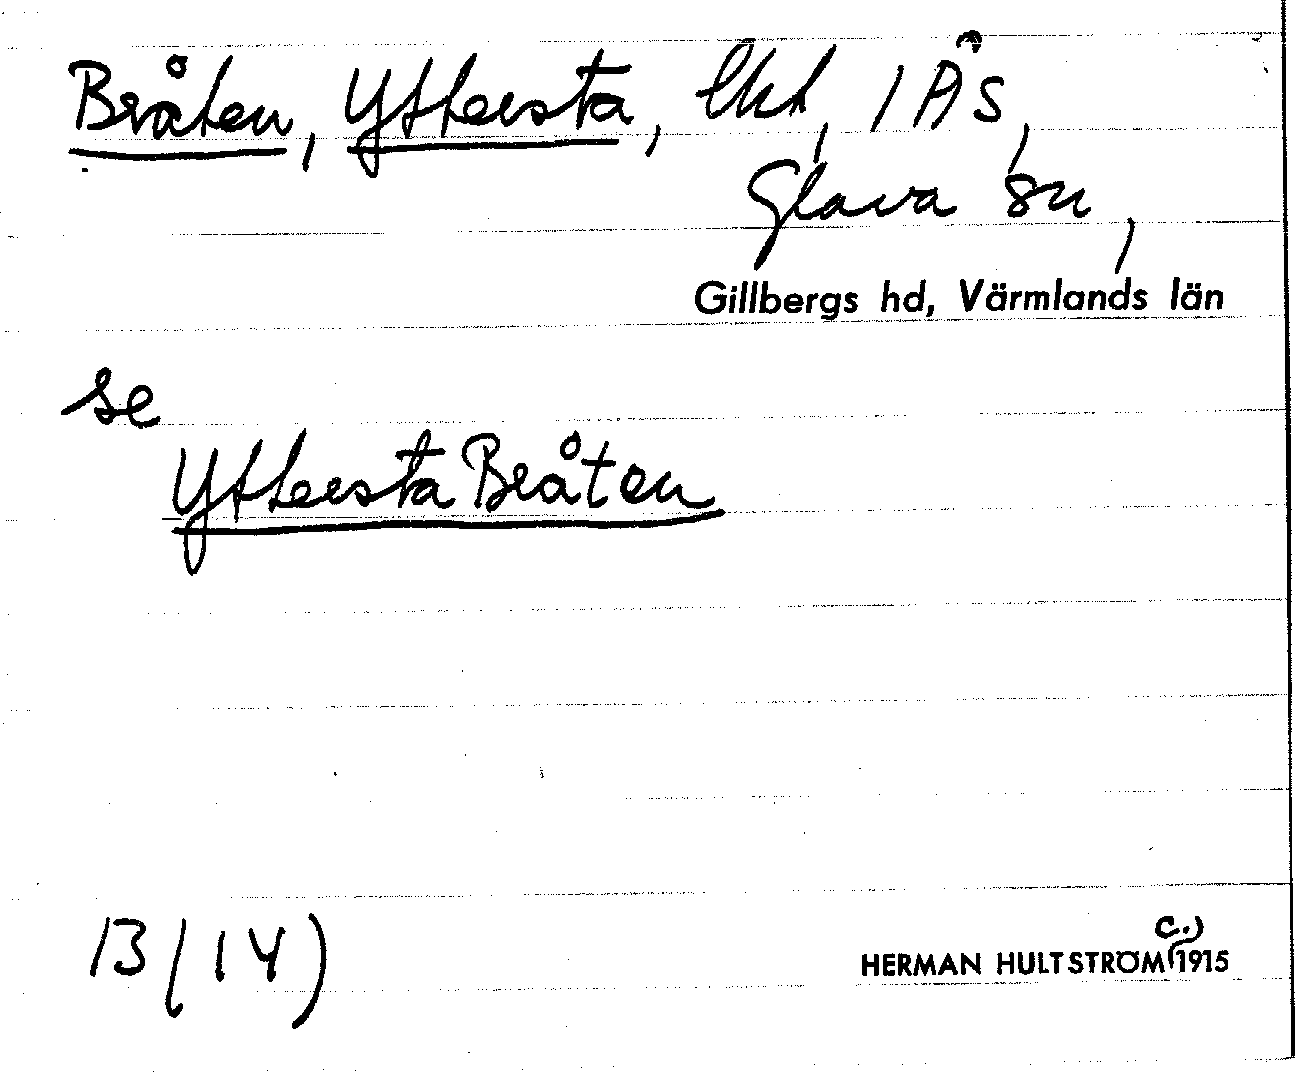 Bråten, Yttersta, lht, / ÅS,
Glava sn,
Gillbergs hd, Värmlands län
se
Yttersta Bråten
13 (14)
c.)
HERMAN HULTSTRÖM 1915